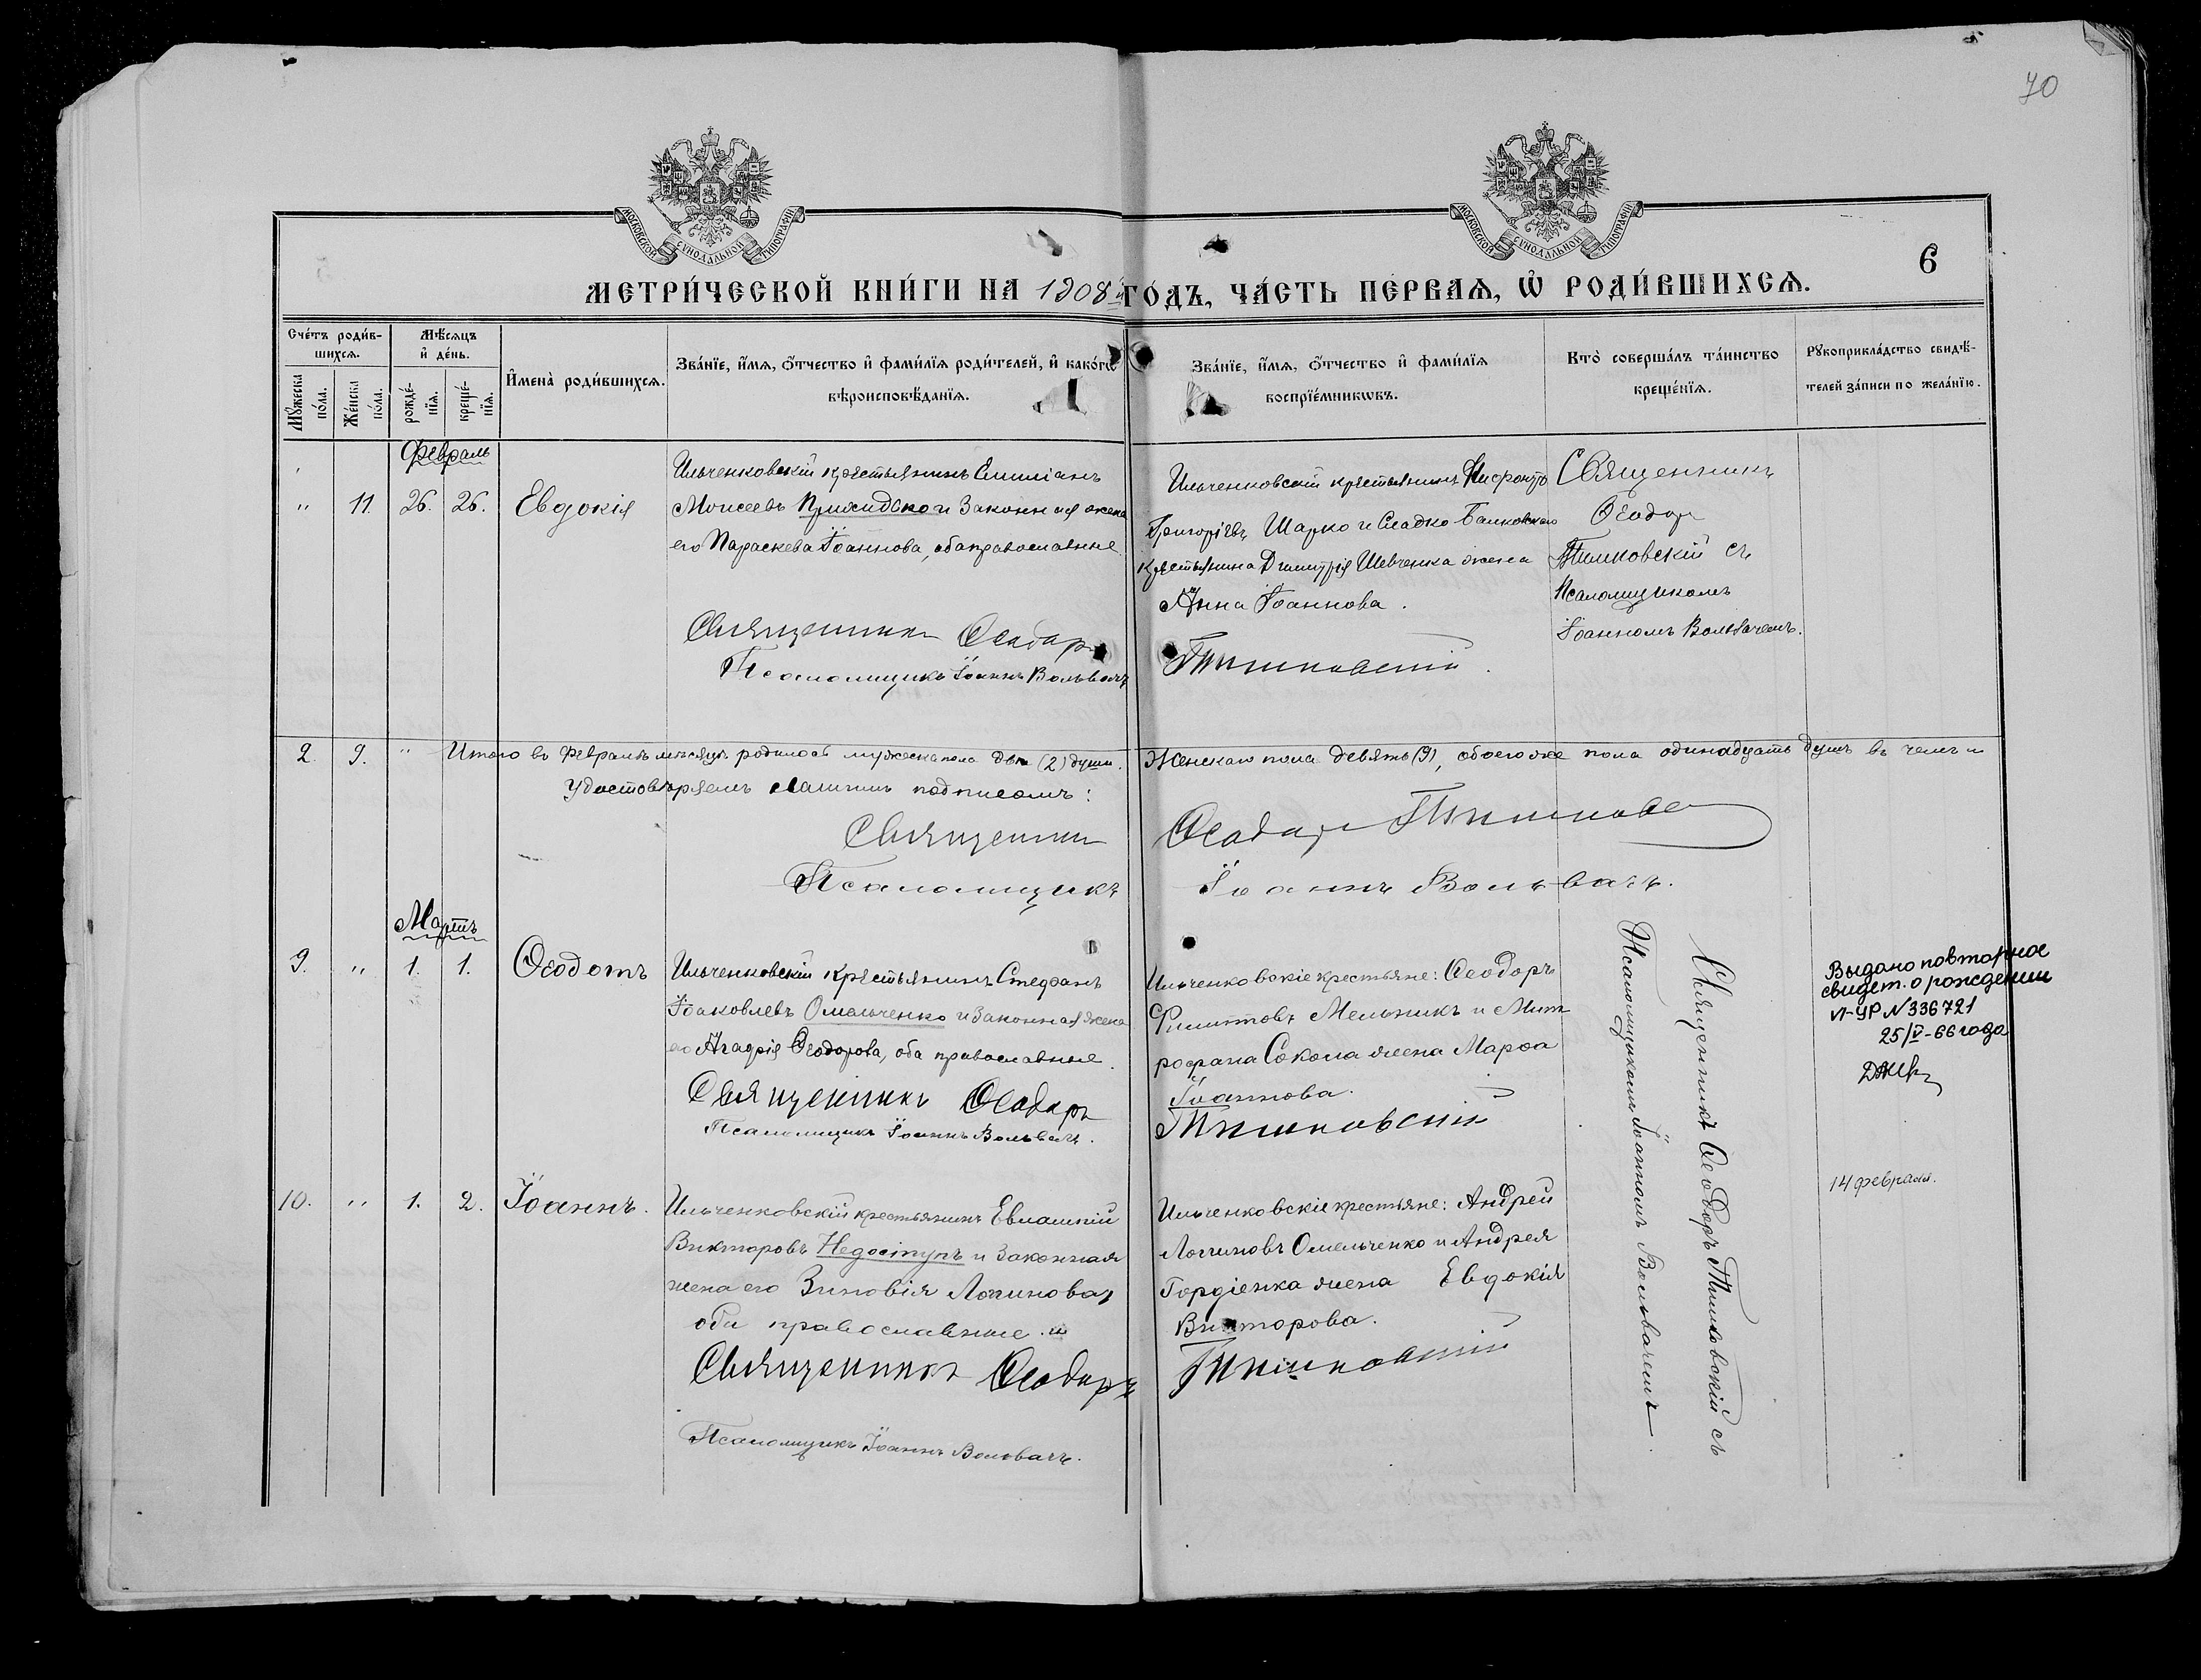 70
МОСКОВСКОЙ СѴНОДАЛЬНОЙ ТИПОГРАФІИ
МОСКОВСКОЙ СѴНОДАЛЬНОЙ ТИПОГРАФІИ
6
МЕТРИ́ЧЕСКОЙ КНИ́ГИ НА 1908й ГО́ДЪ, ЧА́СТЬ ПЕ́РВАѦ, Ѡ҆ РОДИ́ВШИХСѦ.
Сче́тъ роди́в-
шихсѧ.
Мꙋ́жеска по́ла.
Же́нска по́ла.
Мѣ́сѧцъ
и҆ де́нь.
рожде́-
нїѧ.
креще́-
нїѧ.
И҆мена̀ роди́вшихсѧ.
Зва́нїе, и҆́мѧ, ѻ҆́тчество и҆ фами́лїѧ роди́телей, и҆ како́гѡ
вѣроисповѣ́данїѧ.
Зва́нїе, и҆́мѧ, ѻ҆́тчество и҆ фами́лїѧ
воспрїе́мникѡвъ.
Кто̀ соверша́лъ та́инство
креще́нїѧ.
Рꙋкоприкла́дство свидѣ́-
телей за́писи по жела́нїю.
Февраль
" 11. 26. 26. Евдокія
Ильченковскій крестьянинъ Емиліанъ
Моисеевъ и законная жена
его Параскева Іоаннова, оба православные.
Священникъ Ѳеодоръ
Псаломщикъ Іоаннъ Вольвачъ
Ильченковскій крестьянинъ
Григоріевъ Шарко и
крестьянина Димитрія Шевченка жена
Анна Іоаннова.
Тишковскій.
Священникъ
Ѳеодоръ
Тишковскій съ
Псаломщикомъ
Іоанномъ Вольвачемъ.
2. 9. " Итого въ Февралѣ мѣсяцѣ родилось мужеска пола двѣ (2) души. Женскаго пола девять (9), обоего же пола одинадцать душъ въ чемъ и
удостовѣряемъ нашимъ подписомъ:
Священникъ Ѳеодоръ
Псаломщикъ Іоаннъ Вольвачъ.
Мартъ
9. " 1. 1. Ѳеодотъ
Ильченковскій крестьянинъ Стефанъ
Іаковлевъ Омельченко и законная жена
его Агафія Ѳеодорова, оба православные.
Священникъ Ѳеодоръ
Псаломщикъ Іоаннъ Вольвачъ.
Ильченковскіе крестьяне: Ѳеодоръ
Филипповъ Мельникъ и Мит
рофана Сокола жена Марѳа
Іоаннова.
Тишковскій
Священникъ Ѳеодоръ Тишковскій съ
Псаломщикомъ Іоанномъ Вольвачемъ.
Выдано повторное
свидет. о рождении
УР N 336721
25/IV-66 года
10. " 1. 2. Іоаннъ.
Ильченковскій крестьянинъ Евлампій
Викторовъ Недоступъ и законная
жена его Зиновія Логинова,
оба православные.
Священникъ Ѳеодоръ
Псаломщикъ Іоаннъ Вольвачъ.
Ильченковскіе крестьяне: Андрей
Логиновъ Омельченко и Андрея
Гордіенка жена Евдокія
Викторова.
Тишковскій
14 февраля.